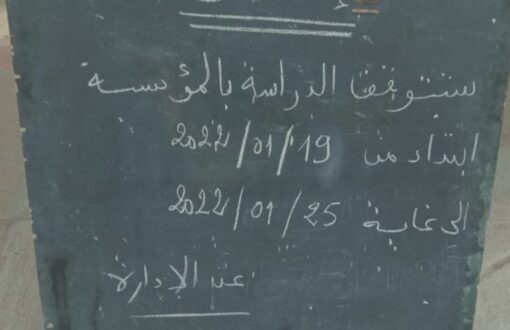 ستتوقف الدراسة بالمؤسسة
ابتداء من 2022/01/19
الى غاية 2022/01/25
عن الإدارة